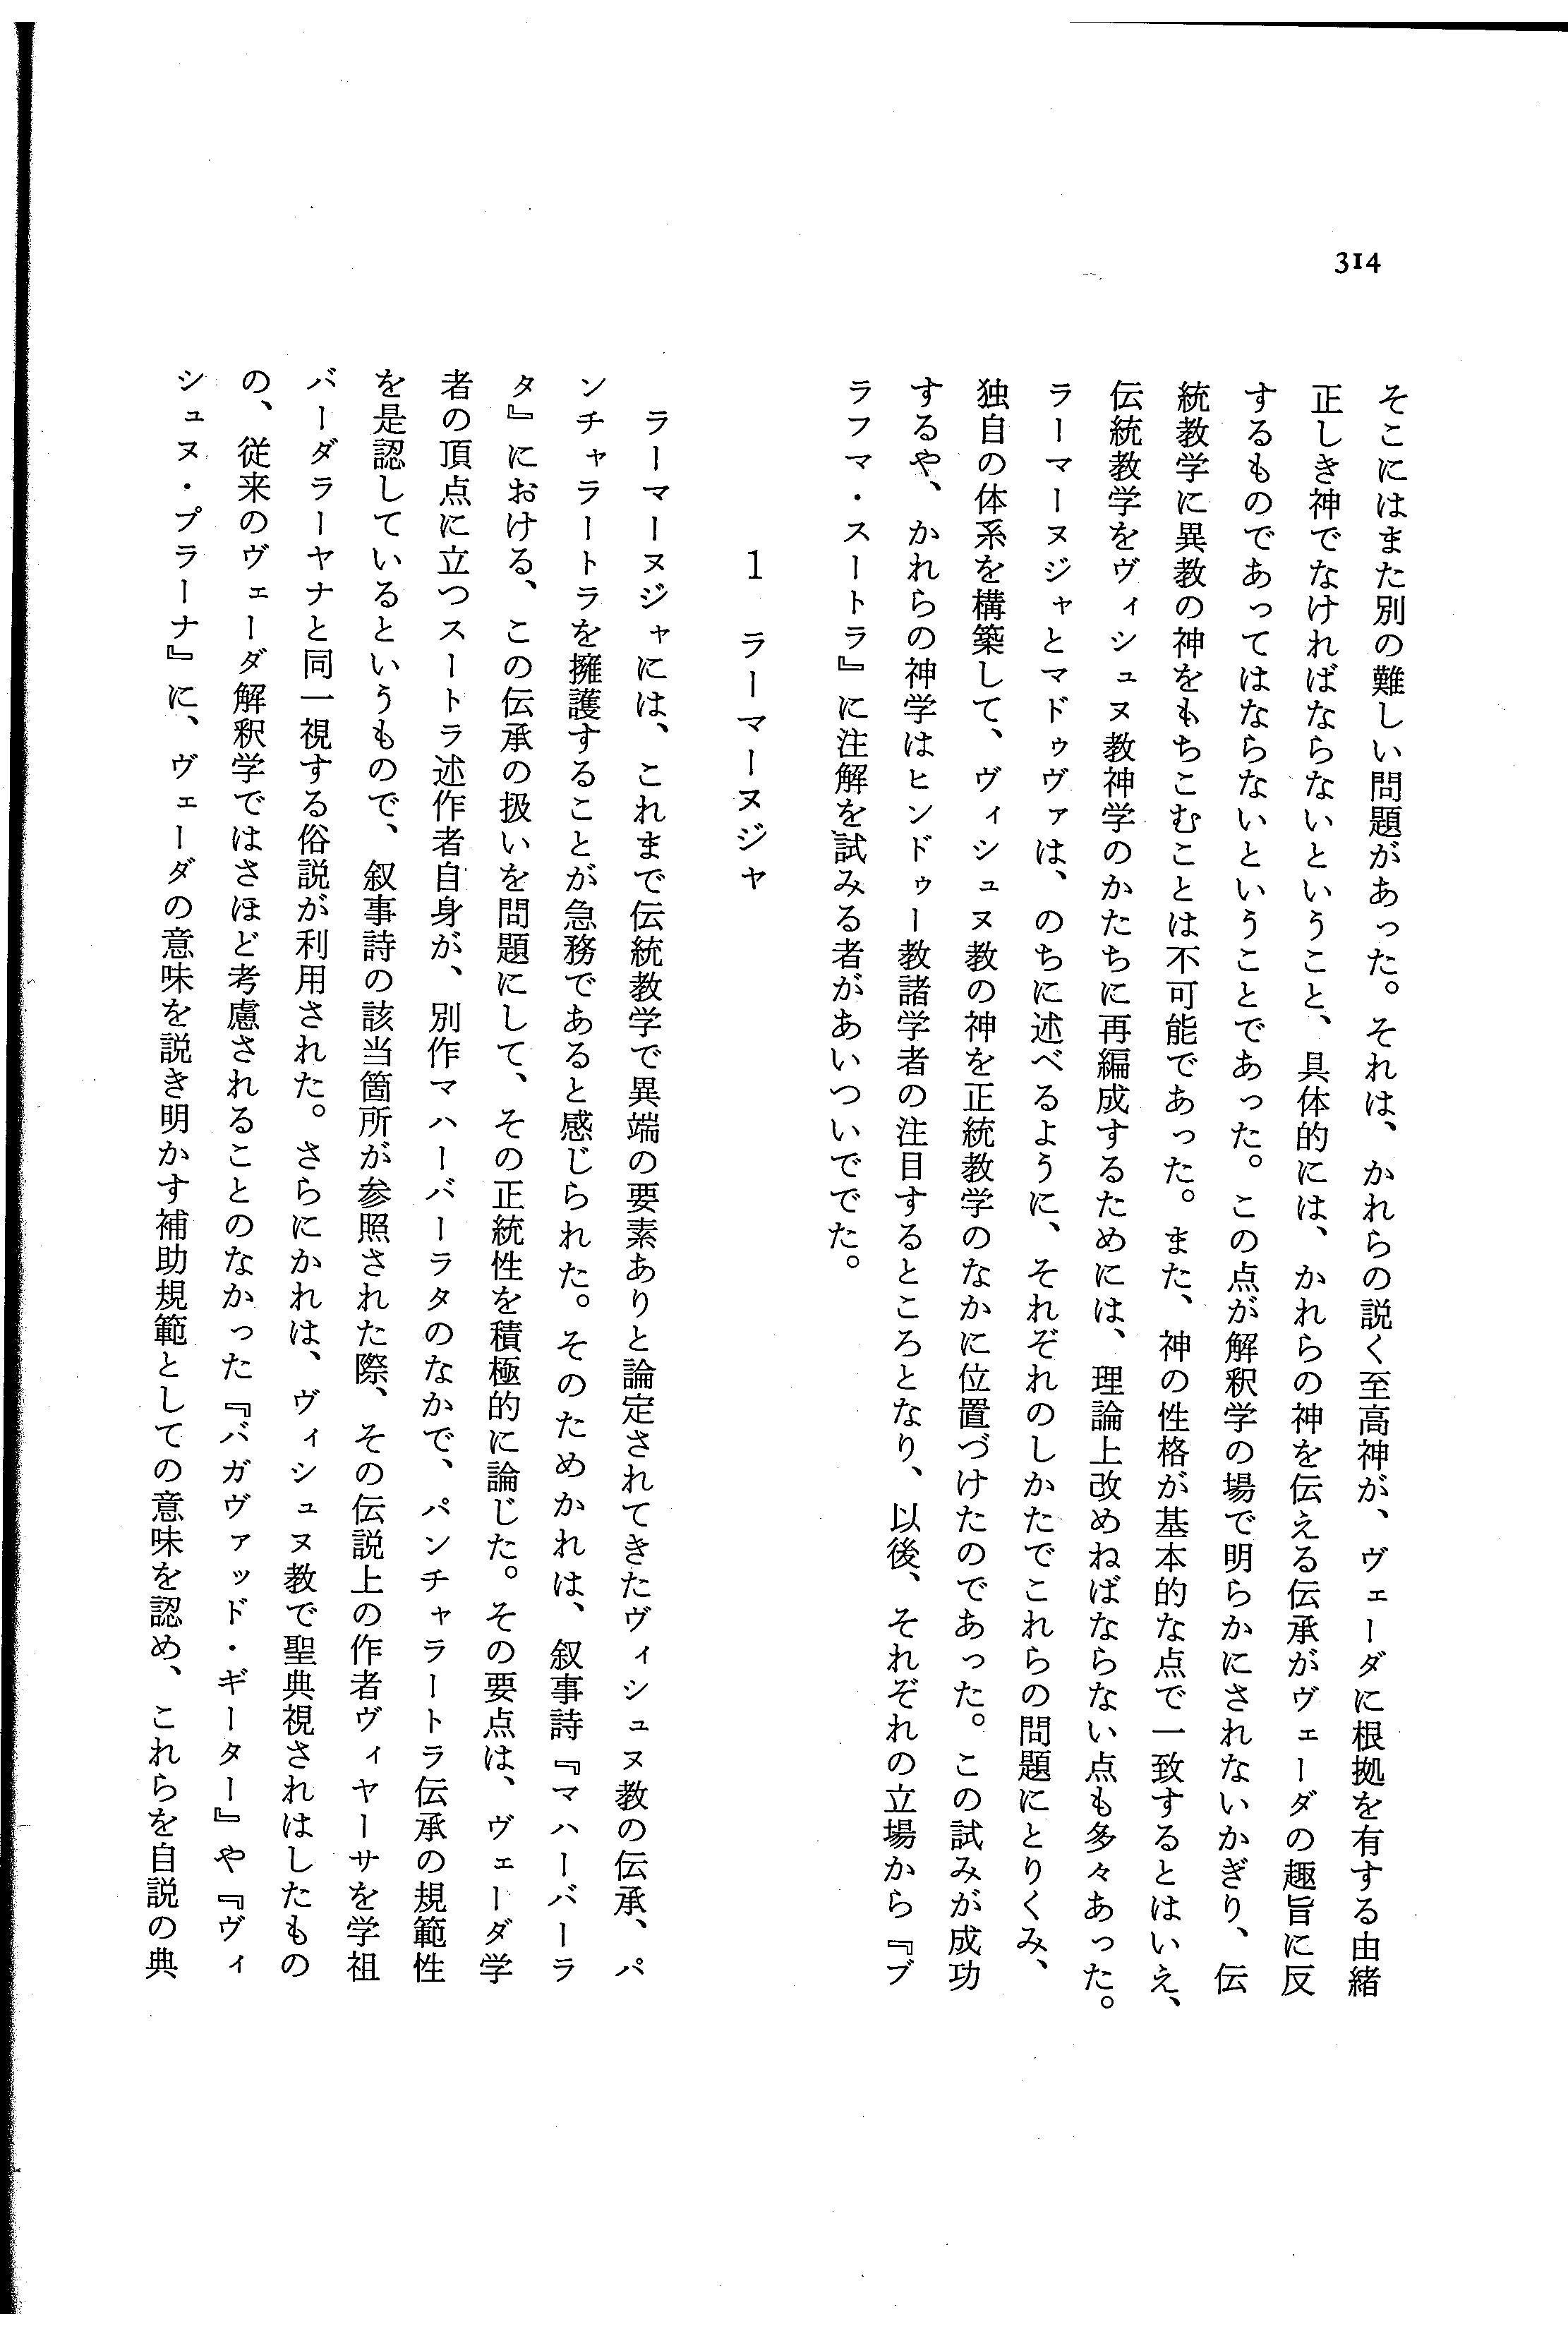 314
そこにはまた別の難しい問題があった。それは、かれらの説く至高神が、ヴェーダに根拠を有する由緒
正しき神でなければならないということ、具体的には、かれらの神を伝える伝承がヴェーダの趣旨に反
するものであってはならないということであった。この点が解釈学の場で明らかにされないかぎり、伝
統教学に異教の神をもちこむことは不可能であった。また、神の性格が基本的な点で一致するとはいえ、
伝統教学をヴィシュヌ教神学のかたちに再編成するためには、理論上改めねばならない点も多々あった。
ラーマーヌジャとマドゥヴァは、のちに述べるように、それぞれのしかたでこれらの問題にとりくみ、
独自の体系を構築して、ヴィシュヌ教の神を正統教学のなかに位置づけたのであった。この試みが成功
するや、かれらの神学はヒンドゥー教諸学者の注目するところとなり、以後、それぞれの立場から『ブ
ラフマ・スートラ』に注解を試みる者があいついででた。
1 ラーマーヌジャ
ラーマーヌジャには、これまで伝統教学で異端の要素ありと論定されてきたヴィシュヌ教の伝承、パ
ンチャラートラを擁護することが急務であると感じられた。そのためかれは、叙事詩『マハーバーラ
タ』における、この伝承の扱いを問題にして、その正統性を積極的に論じた。その要点は、ヴェーダ学
者の頂点に立つスートラ述作者自身が、別作マハーバーラタのなかで、パンチャラートラ伝承の規範性
を是認しているというもので、叙事詩の該当箇所が参照された際、その伝説上の作者ヴィヤーサを学祖
バーダラーヤナと同一視する俗説が利用された。さらにかれは、ヴィシュヌ教で聖典視されはしたもの
の、従来のヴェーダ解釈学ではさほど考慮されることのなかった『バガヴァッド・ギーター』や『ヴィ
シュヌ・プラーナ』に、ヴェーダの意味を説き明かす補助規範としての意味を認め、これらを自説の典